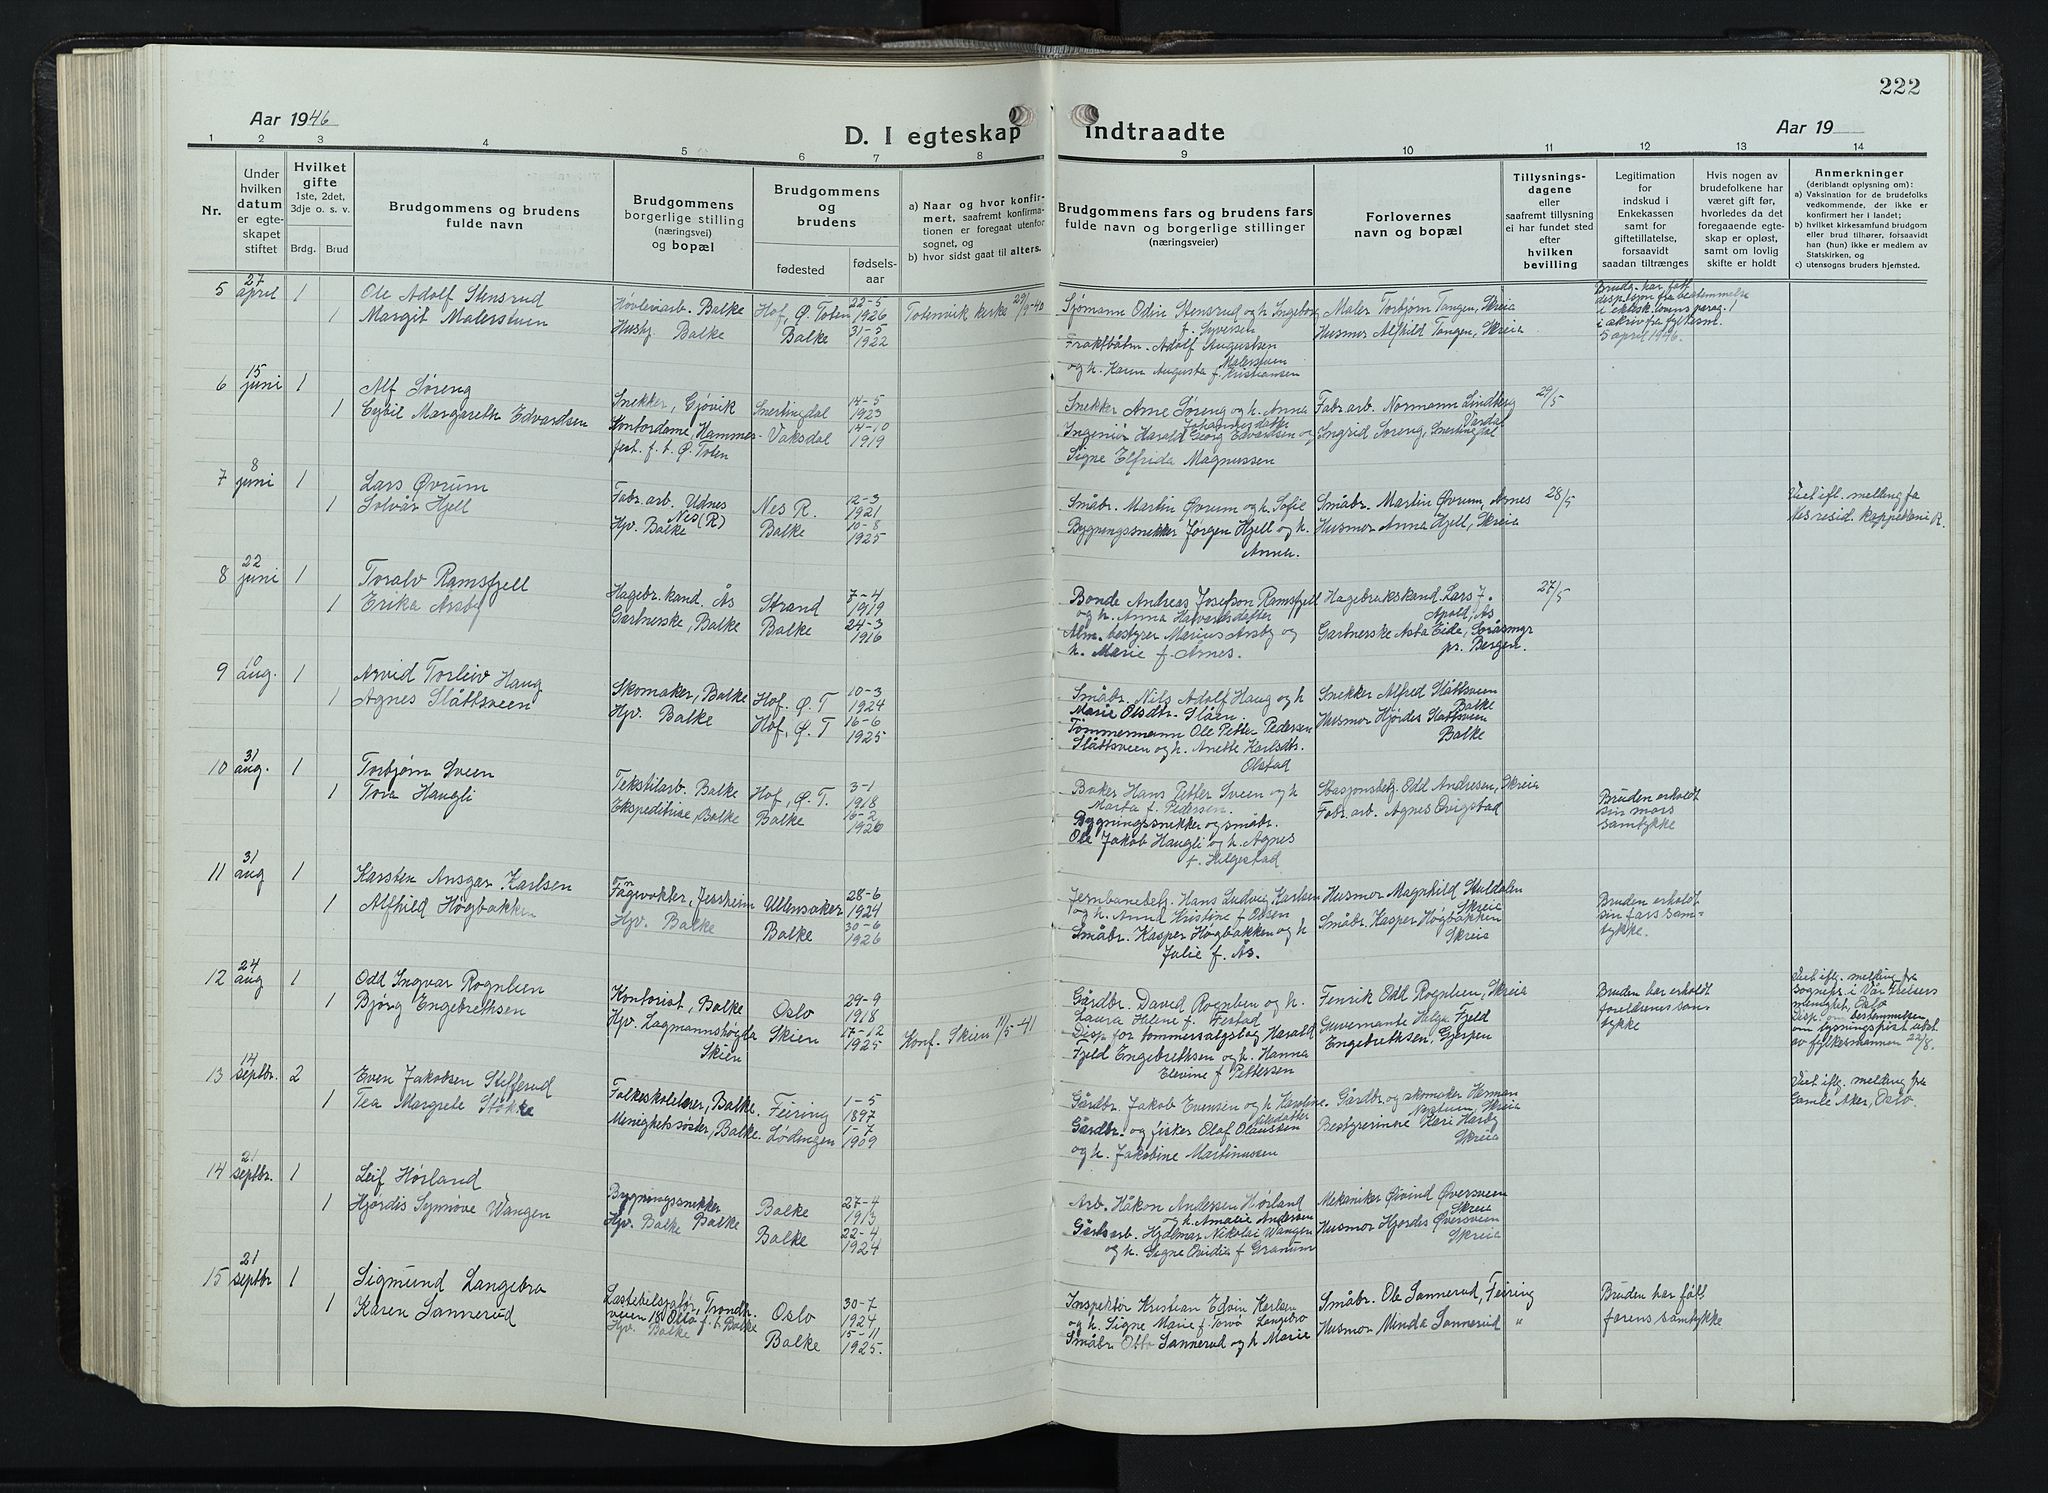 222
Aar 1946
D. I egteskap indtraadte
Aar 19
1 2 3 4 5 6 7 8 9 10 11 12 13 14
Nr.
Under hvilken datum er egteskapet stiftet
Hvilket gifte 1ste, 2det, 3dje o. s. v.
Brdg. Brud
Brudgommens og brudens fulde navn
Brudgommens borgerlige stilling (næringsvei) og bopæl
Brudgommens og brudens
fødested fødsels-aar
a) Naar og hvor konfirmert, saafremt konfirmationen er foregaat utenfor sognet, og
b) hvor sidst gaat til alters.
Brudgommens fars og brudens fars fulde navn og borgerlige stillinger (næringsveier)
Forlovernes navn og bopæl
Tillysningsdagene eller saafremt tillysning ei har fundet sted efter hvilken bevilling
Legitimation for indskud i Enkekassen samt for giftetillatelse, forsaavidt saadan tiltrænges
Hvis nogen av brudefolkene har været gift før, hvorledes da det foregaaende egteskap er opløst, samt om lovlig skifte er holdt
Anmerkninger (deriblandt oplysning om):
a) Vaksination for de brudefolks vedkommende, der ikke er konfirmert her i landet;
b) hvilket kirkesamfund brudgom eller brud tilhører, forsaavidt han (hun) ikke er medlem av Statskirken, og
c) utensogns bruders hjemsted.
5 27 april 1 Ole Adolf Stensrud
1 Margit Malerstuen
Høvleriarb. Balke Hof, Ø. Toten 22-5 1926 Totenvik kirke 29/9-40
Husbj. Balke Balke 31-5 1922
Sjømann Odin Stensrud og h. Ingeborg f. Syversen
Fraktbåtm. Adolf Augustsen Malerstuen
og h. Karen Augusta f. Kristiansen
Maler Torbjørn Tangen, Skreia
Husmor Alfhild Tangen, Skreia
Brudg. har fått
disp. fra bestemmelse
i ektesk. lovens parag. 1
i skriv fra fylkesm.
5 april 1946.
6 15 juni 1 Alf Søreng
1 Cybil Margareth Edvardsen
Snekker, Gjøvik Snertingdal 14-5 1923
Kontordame, Hammerfest. f. t. Ø. Toten Vaksdal 14-10 1919
Snekker Arne Søreng og h. Anna Johannesdatter
Ingeniør Harald Georg Edvardsen og
Signe Elfrida Magnussen
Fabr. arb. Normann Lindberg Vardal
Ingrid Søreng, Snertingdal
29/5
7 8 juni 1 Lars Øvrum
1 Solvår Hjell
Fabr. arb. Udnes Nes (R) Nes R. 12-3 1921
Hjv. Balke Balke 10-8 1925
Småbr. Martin Øvrum og h. Sofie
Bygningssnekker Jørgen Hjell og h. Anna.
Småbr. Martin Øvrum, Årnes
Husmor Anna Hjell, Skreia
28/5
Viet ifl. melding fra
Nes resid. kappellani R.
8 22 juni 1 Toralv Ramsfjell
1 Erika Årsby
Hagebr. kand. Ås Strand 7-4 1919
Gartnerske, Balke Balke 24-3 1916
Bonde Andreas Josefson Ramsfjell
og h. Anna Halvardsdatter
Alm. bestyrer Marius Årsby og
h. Marie f. Årnes.
Hagebrukskand. Lars J. Apold, Ås
Gartnerske Asta Eide, pr. Bergen.
27/5
9 10 aug. 1 Arvid Torleiv Haug
1 Agnes Slåttsveen
Skomaker, Balke Hof. Ø. T 10-3 1924
Hjv. Balke Hof, Ø. T 16-6 1925
Småbr. Nils Adolf Haug og h
Marie Olsdtr. Slåen.
Tømmermann Ole Petter Pedersen
Slåttsveen og h. Anette Karlsdtr. Olstad
Snekker Alfred Slåttsveen Balke
Husmor Hjørdis Slåttsveen Balke
10 31 aug. 1 Torbjørn Sveen
1 Tora Haugli
Tekstilarb. Balke Hof, Ø. T. 3-1 1918
Ekspeditrise, Balke Balke 16-2 1926
Baker Hans Petter Sveen og h
Marta f. Pedersen.
Bygningssnekker og småbr.
Ole Jakob Haugli og h. Agnes
f. Helgestad
Stasjonsbetj. Odd Andresen, Skreia
Fabr. arb. Agnes Qvigstad
Bruden erholdt
sin mors
samtykke
11 31 aug 1 Karsten Ansgar Karlsen
1 Alfhild Høgbakken
Fangevokter, Jessheim Ullensaker 28-6 1924
Hjv. Balke Balke 30-6 1926
Jernbanebetj. Hans Ludvig Karlsen
og h. Anna Kristine f. Olsen
Småbr. Kasper Høgbakken og h
Julie f. Ås.
Husmor Magnhild Skuldalen Skreia
Småbr. Kasper Høgbakken Skreia
Bruden erholdt
sin fars sam-
tykke.
12 24 aug 1 Odd Ingvar Rognlien
1 Bjørg Engebrethsen
Kontorist, Balke Oslo 29-9 1918
Hjv. Lagmannshøgda Skien Skien 17-12 1925 Konf. Skien 11/5-41
Gårdbr. David Rognlien og h.
Laura Helene f. Festad
Disp. for tommersalgslag Harald
Fjeld Engebrethsen og h. Hanna
Elevine f. Pettersen
Fenrik Odd Rognlien, Skreia
Guvernante Helga Fjeld
Engebrethsen, Gjerpen
Bruden har erholdt
foreldrenes sam-
tykke
Viet ifl. melding fra
sognepr. i Vår Frelsers
menighet, Oslo
Disp. om bestemmelsen
om lysningsfrist utst.
av fylkesmannen 22/8.
13 14 septbr. 2 Even Jakobsen Stefferud
1 Tea Margrete Stokke
Folkeskolelærer, Balke. Feiring 1-5 1897
Menighetssøster, Balke. Lødingen 1-7 1909
Gårdbr. Jakob Evensen og h. Karoline Olsdatter
Gårdbr. og fisker Olaf Olaussen
og h. Jakobine Martinussen
Gårdbr. og skomaker Herman Nystuen, Skreia
Bestyrerinne Kari Harby Skreia
Viet ifl. melding fra
Gamle Aker, Oslo.
14 21 septbr. 1 Leif Hørland
1 Hjørdis Synnøve Wangen
Bygningssnekker Balke 27-4 1913
Hjv. Balke Balke Balke 22-4 1924
Arb. Håkon Andersen Hørland
og h. Amalie Andersen
Gårdsarb. Hjalmar Nikolai Wangen
og h. Signe Ovidia f. Granum
Mekaniker Øivind Øversveen Skreia
Husmor Hjørdis Øversveen Skreia
15 21 septbr 1 Sigmund Langebro
1 Karen Sannerud
Lastebilsjåfør, Trondh.veien 181 Oslo f. t. Balke Oslo 30-7 1924
Hjv. Balke Balke 15-11 1925.
Inspektør Kristian Edvin Karlsen
og h. Signe Marie f. Torvø Langebro
Småbr. Otto Sannerud og h Marie
Småbr. Ole Sannerud, Feiring
Husmor Minda Sannerud "
Bruden har fått
farens samtykke